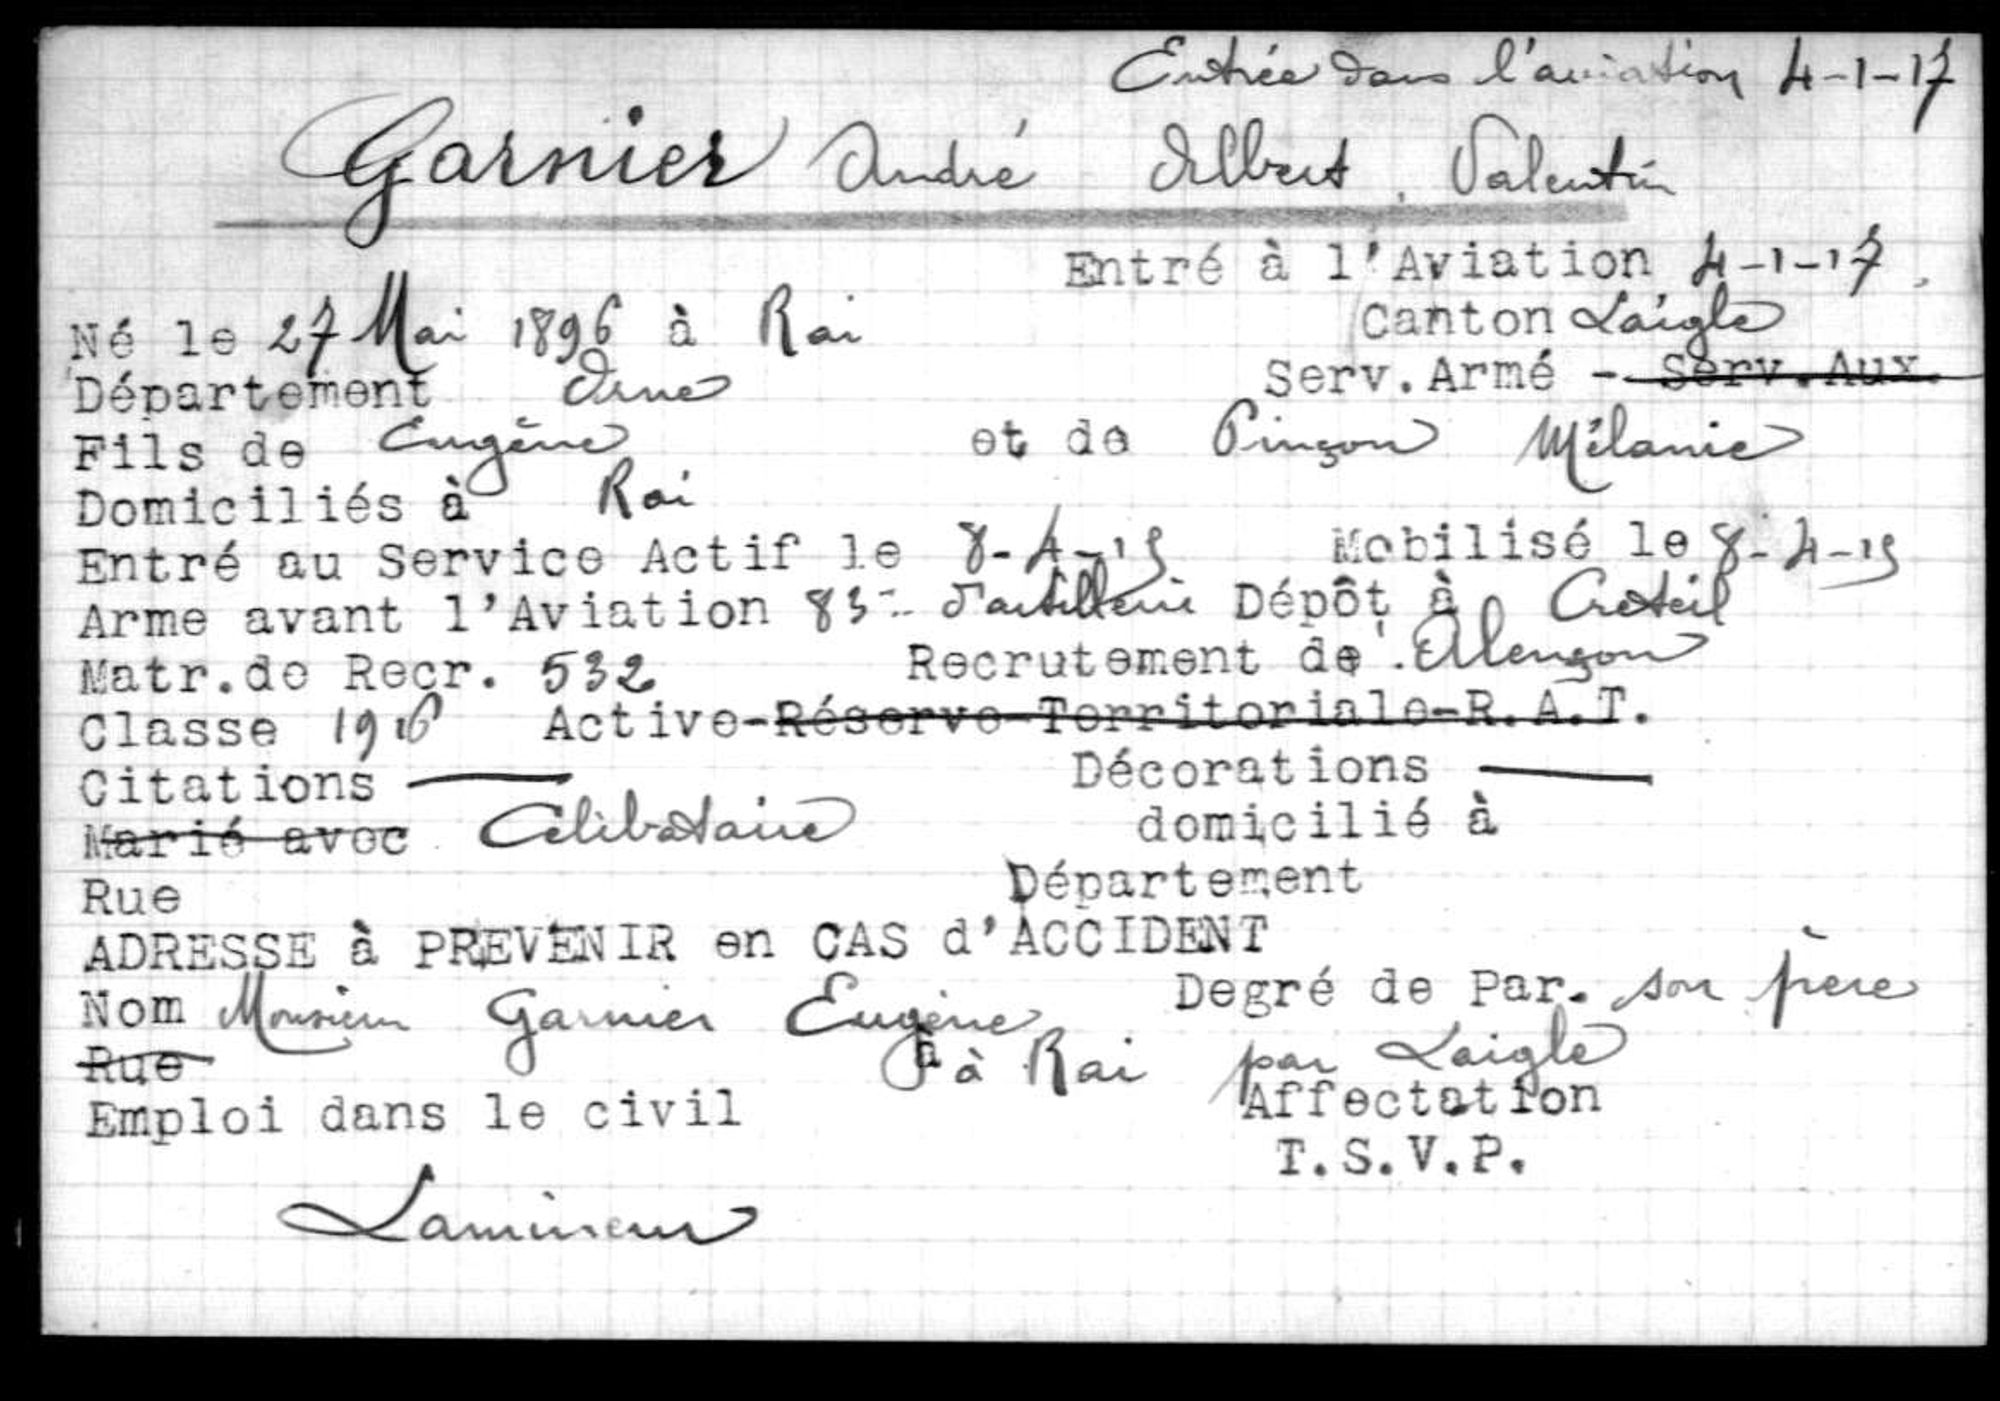 Entrée dans l'aviation 4-1-17
Garnier André Albert, Valentin
Entré à l'Aviation 4-1-17.
Né le 27 Mai 1896 à Rai Canton Laigle
Département Orne Serv.Armé - Serv.Aux.
Fils de Eugène et de Pinçon Mélanie
Domiciliés à Rai
Entré au Service Actif le 8-4-15 Mobilisé le 8-4-15
Arme avant l'Aviation 83e d'artillerie Dépôt à Créteil
Matr.de Recr. 532 Recrutement de Alençon
Classe 1916 Active-Réserve-Territoriale-R.A.T.
Citations — Décorations —
Marié avec Célibataire domicilié à
Rue Département
ADRESSE à PREVENIR en CAS d'ACCIDENT
Nom Monsieur Garnier Eugène Degré de Par. son père
Rue à à Rai par Laigle
Emploi dans le civil Affectation
T.S.V.P.
Lamineur